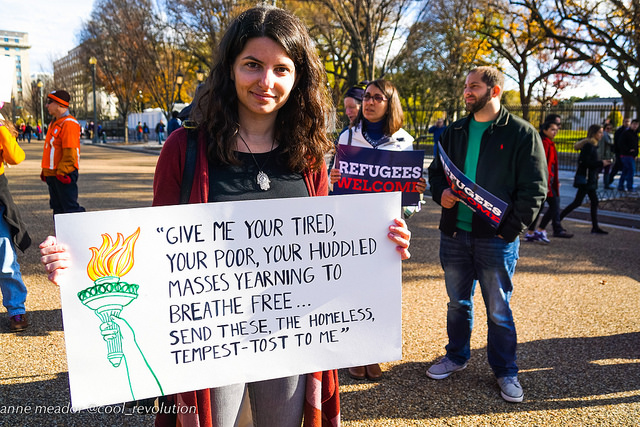 "GIVE ME YOUR TIRED,
YOUR POOR, YOUR HUDDLED
MASSES YEARNING TO
BREATHE FREE...
SEND THESE, THE HOMELESS,
TEMPEST-TOST TO ME"
REFUGEES
WELCOME
REFUGEES
WELCOME
anne meador @cool_revolution